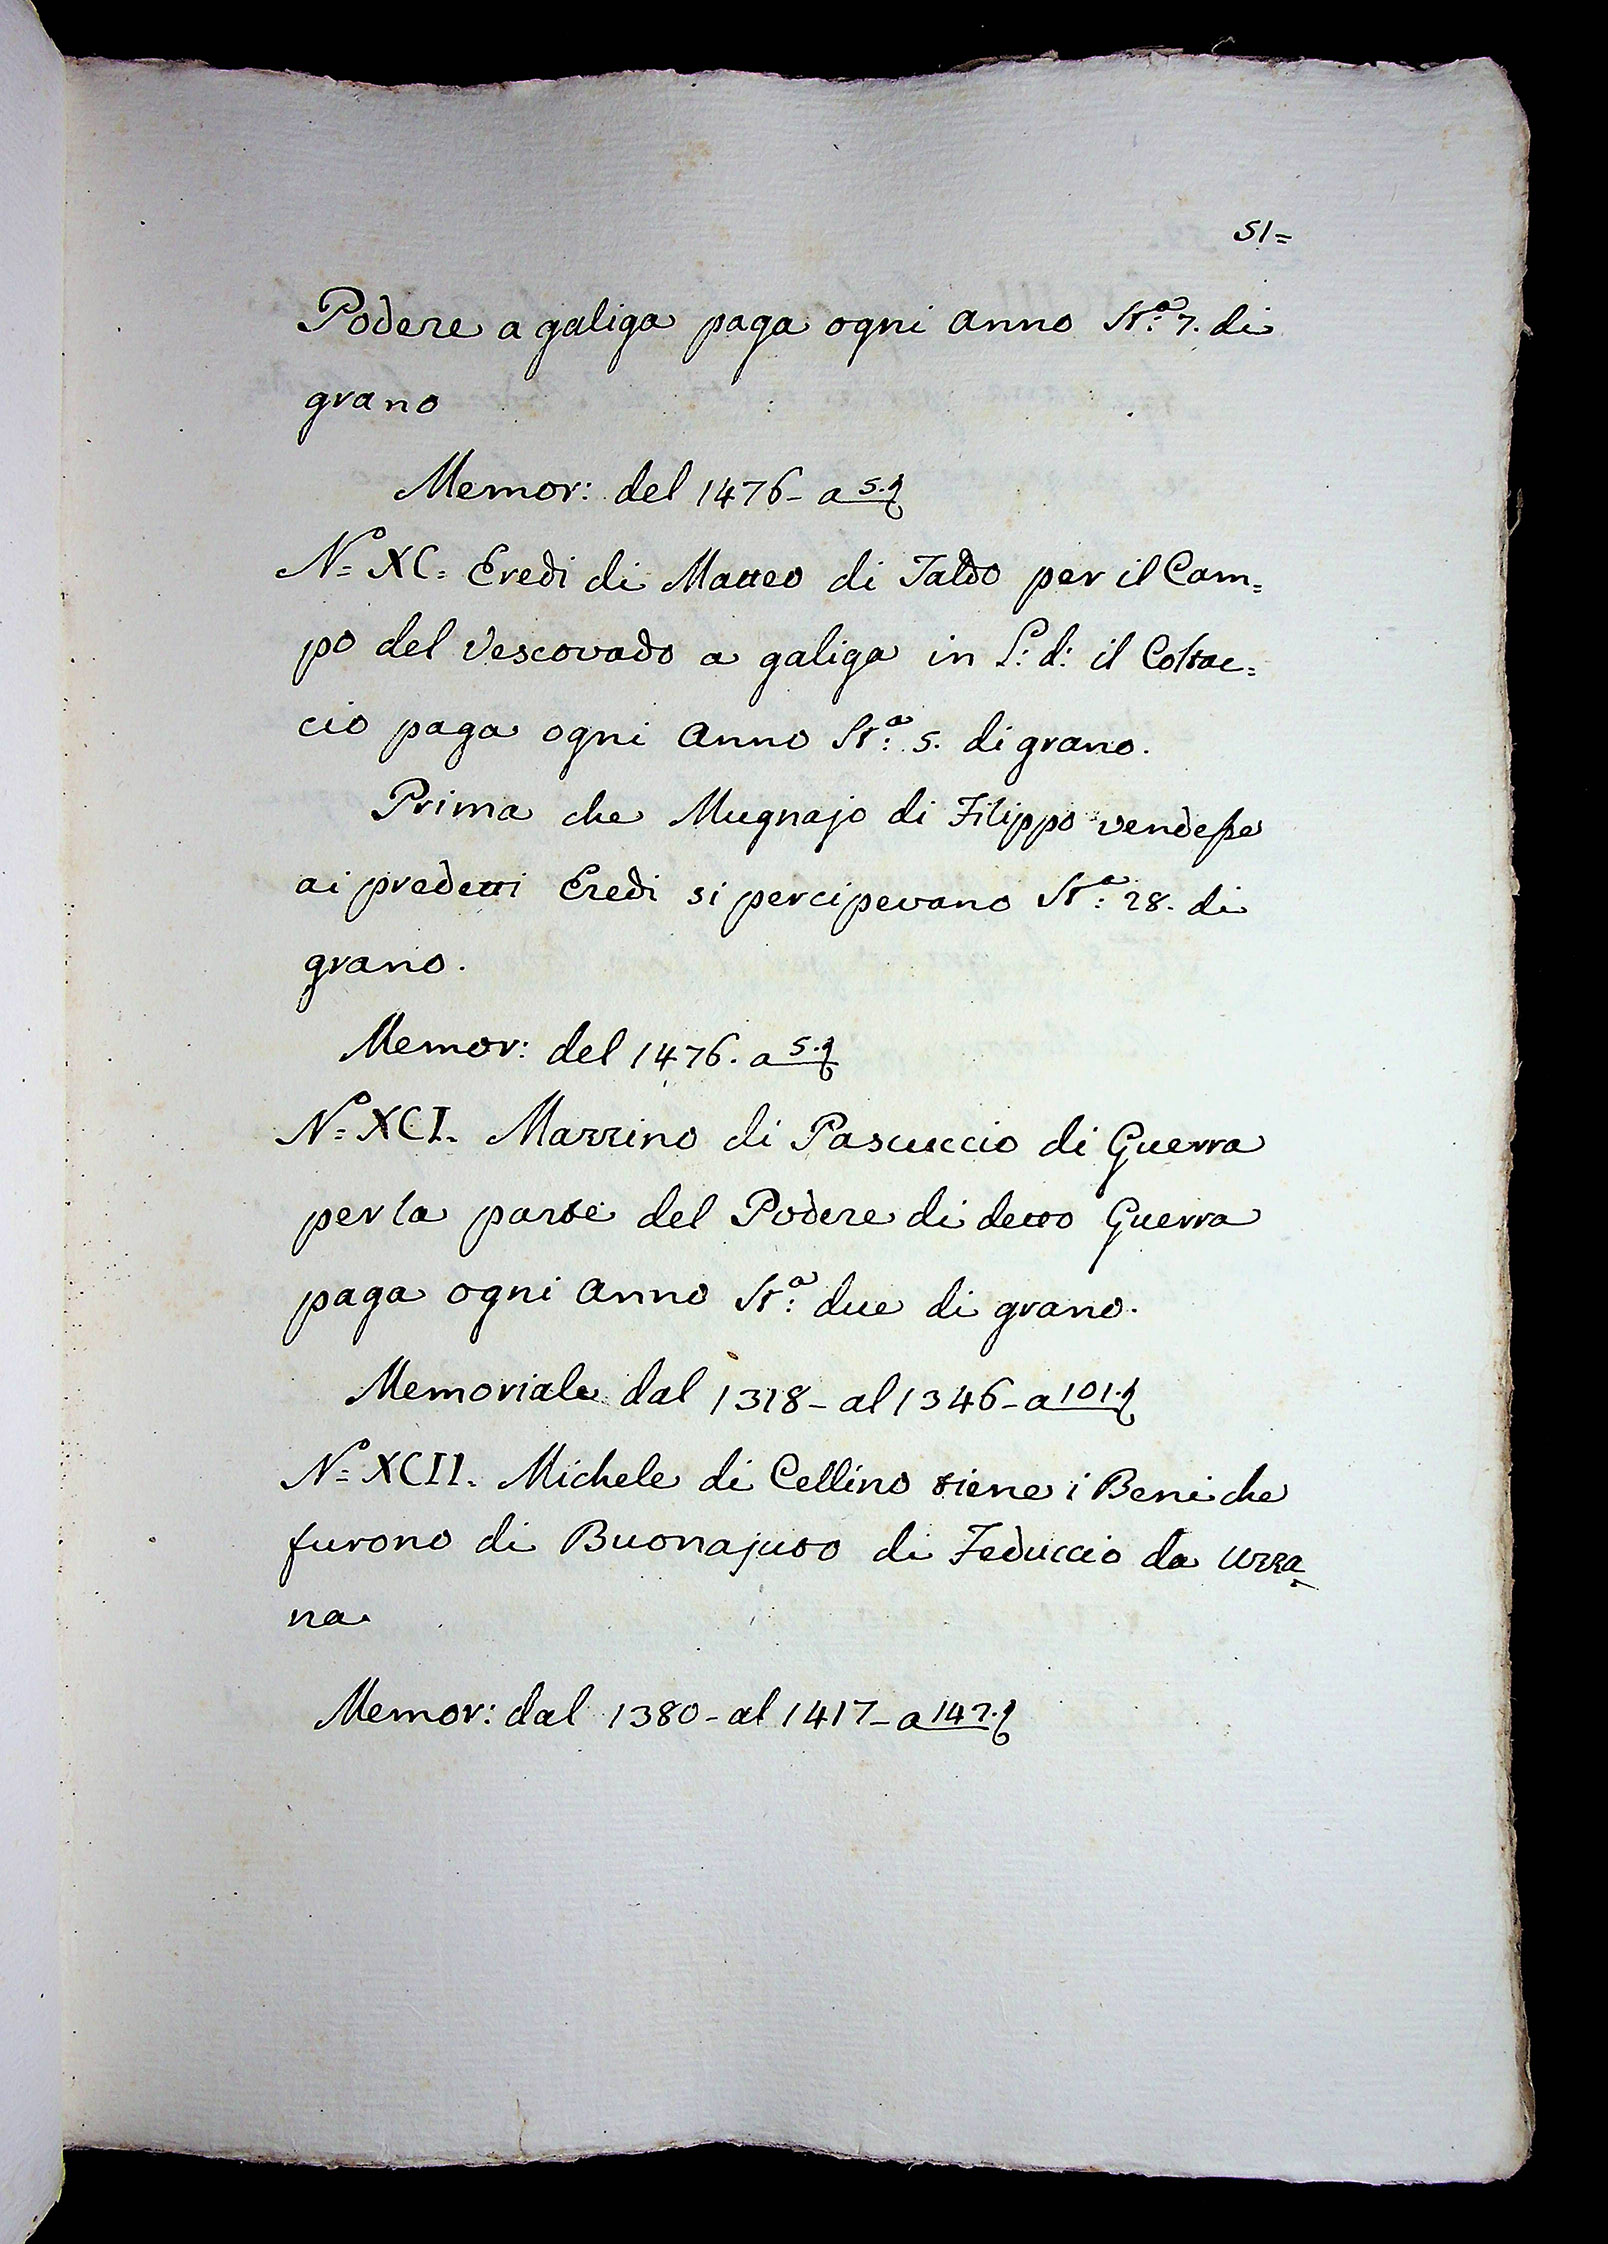 51=
Podere a galiga paga ogni anno Sta: 7. di
grano
Memor: del 1476- a 5.
No= XC= Eredi di Matteo di Taldo per il Cam=
po del Vescovado a galiga in L: d: il Coltac=
cio paga ogni anno Sta: 5. di grano.
Prima che Mugnajo di Filippo vendesse
ai predetti Eredi si percipevano Sta: 28. di
grano.
Memor: del 1476. a 5.
No= XCI. Mazzino di Pascuccio di Guerra
per la parte del Podere di detto Guerra
paga ogni anno Sta: due di grano.
Memoriale dal 1318- al 1346- a 101.
No= XCII. Michele di Cellino tiene i Beni che
furono di Buonajuto di Feduccio da Uzza=
na.
Memor: dal 1380- al 1417- a 147.